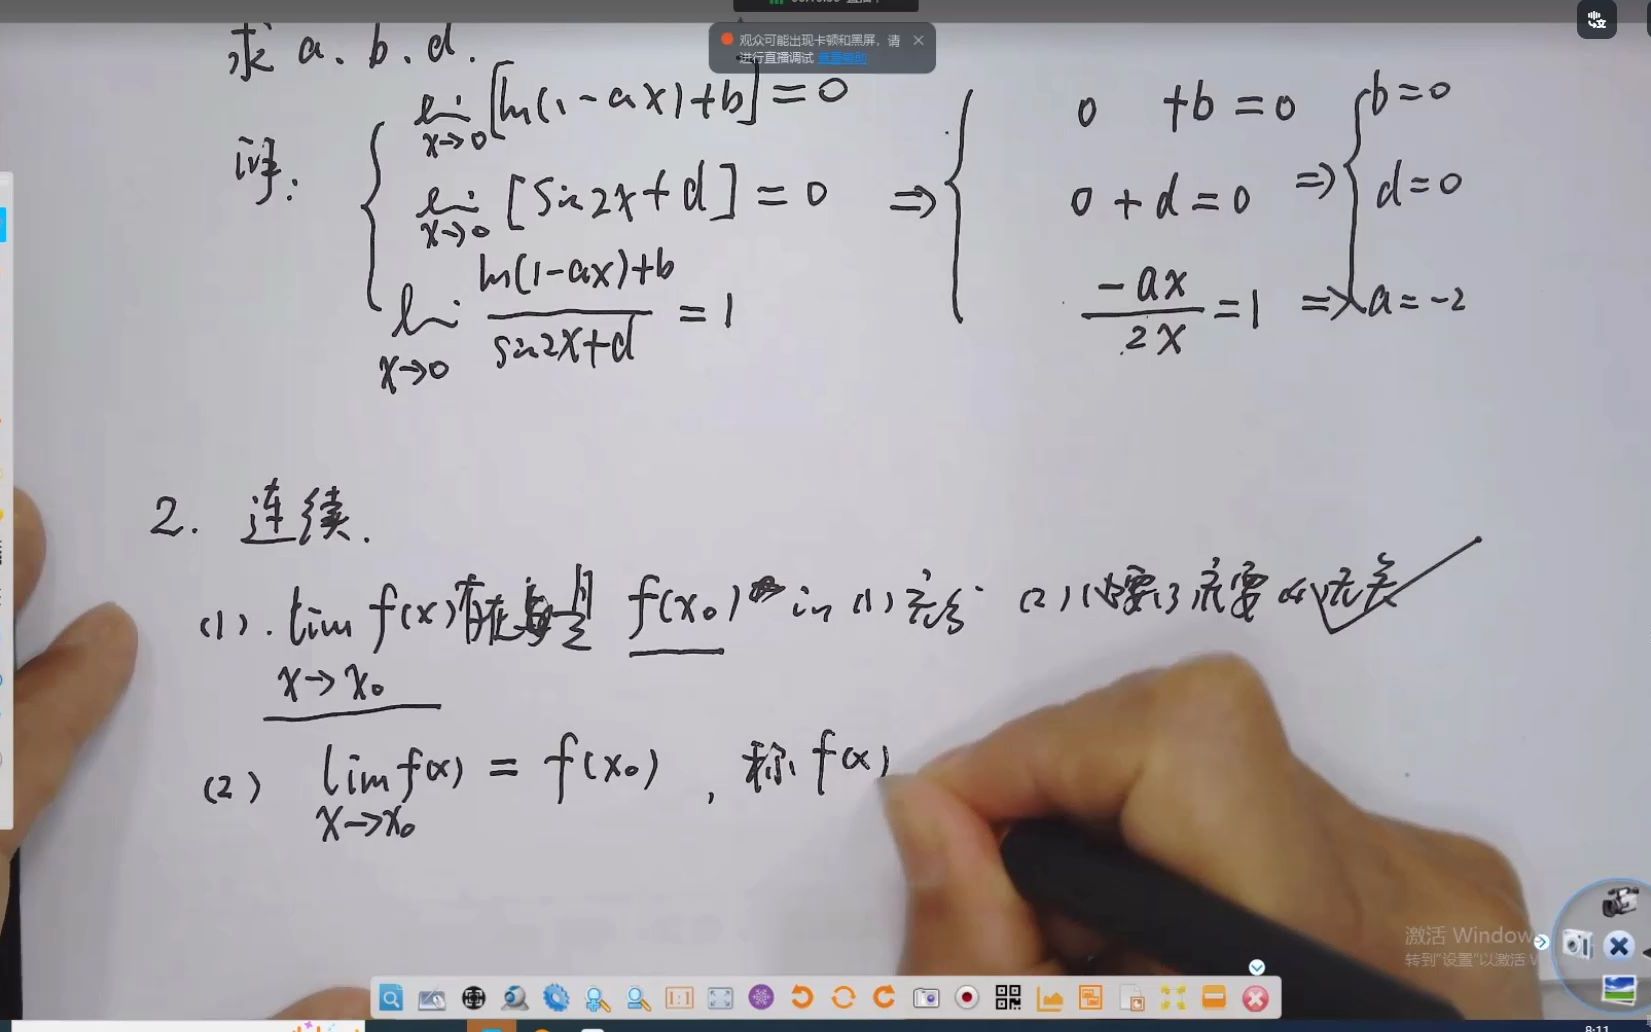 观众可能出现卡顿和黑屏，请
进行直播调试 查看帮助
求 a、b、d.
lim x→0 [ln(1-ax)+b] = 0
lim x→0 [sin2x+d] = 0
lim x→0 (ln(1-ax)+b)/(sin2x+d) = 1
⇒ { 0 +b = 0
0 + d = 0
-ax/2x = 1
⇒ { b = 0
d = 0
⇒ a = -2
2. 连续.
(1). lim x→x₀ f(x) 存在是 f(x₀) (1) 充分 (2) 必要 (3) 充要 (4) 无关
(2) lim x→x₀ f(x) = f(x₀) , 称 f(x)
激活 Window
转到"设置"以激活 W
1:1
8:11